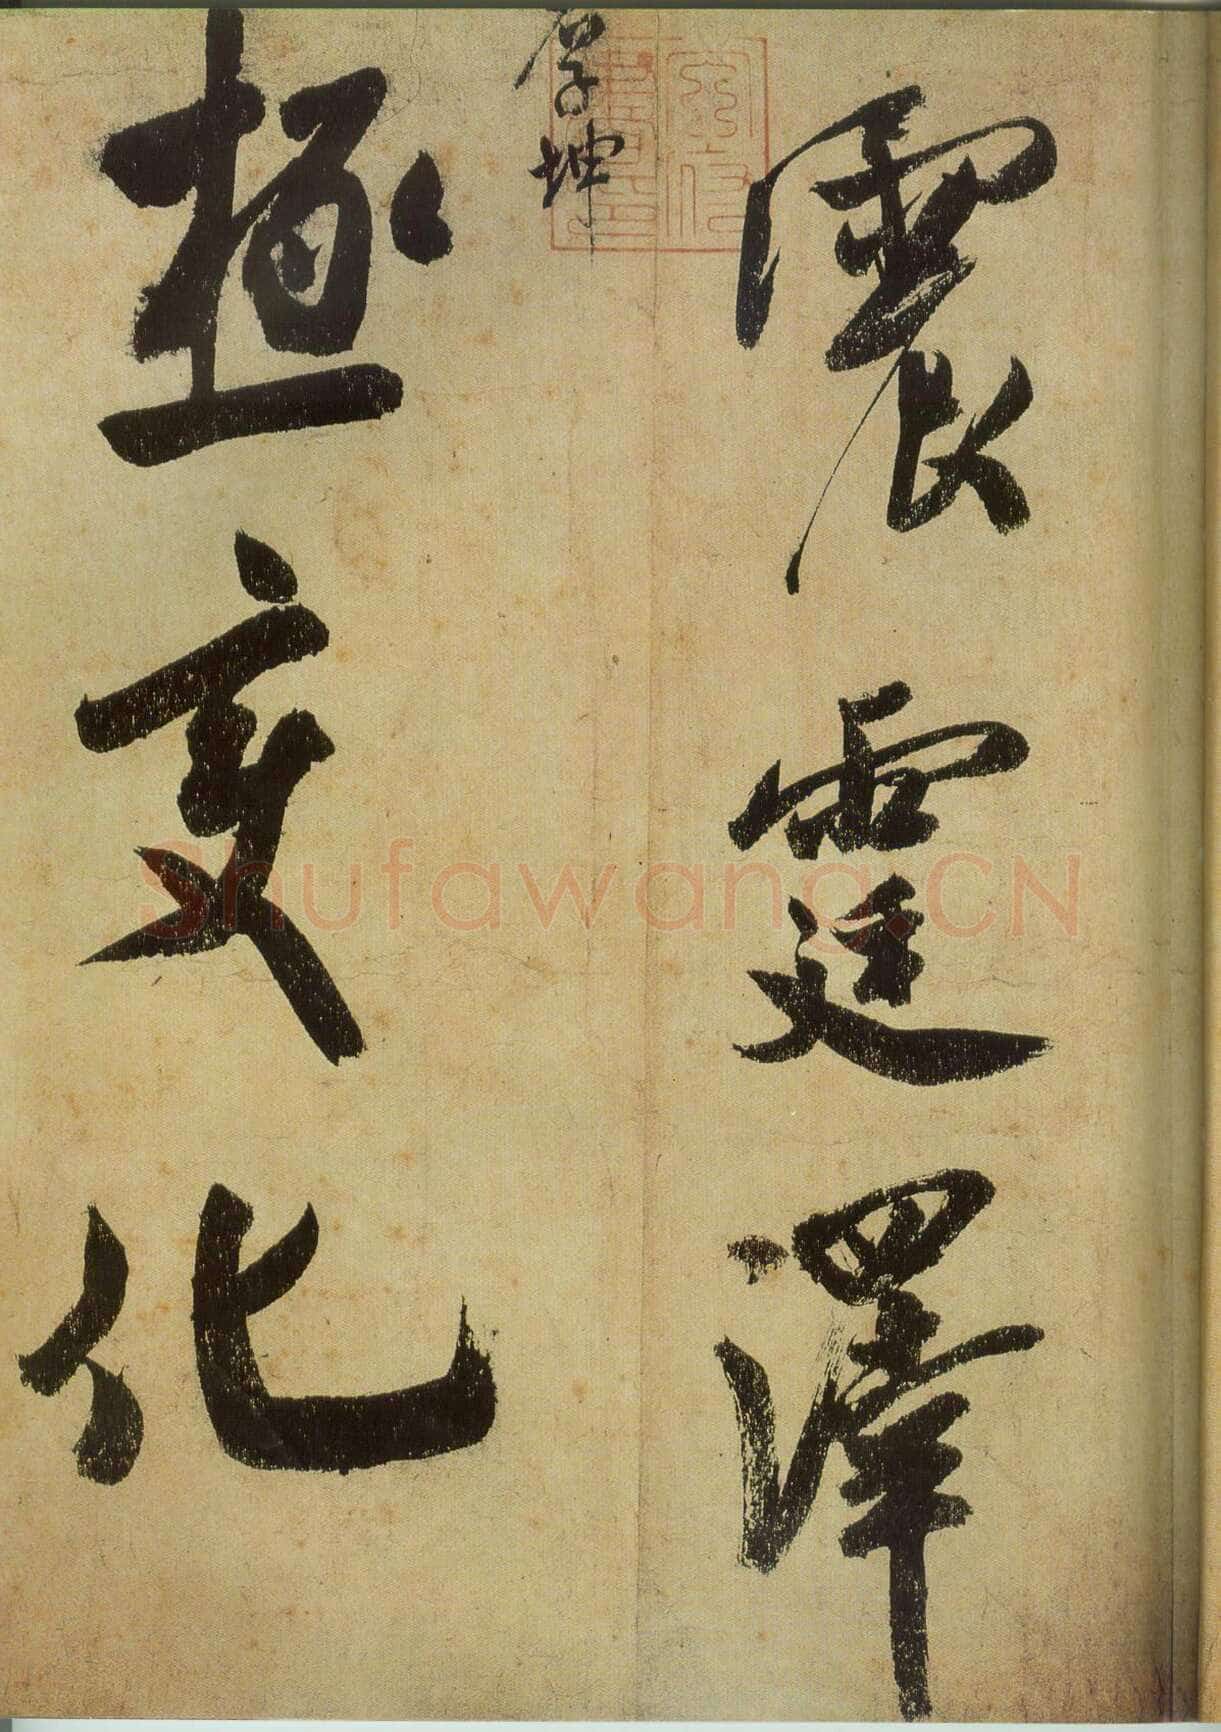 震霆澤
厚坤
極變化
Shufawang.CN